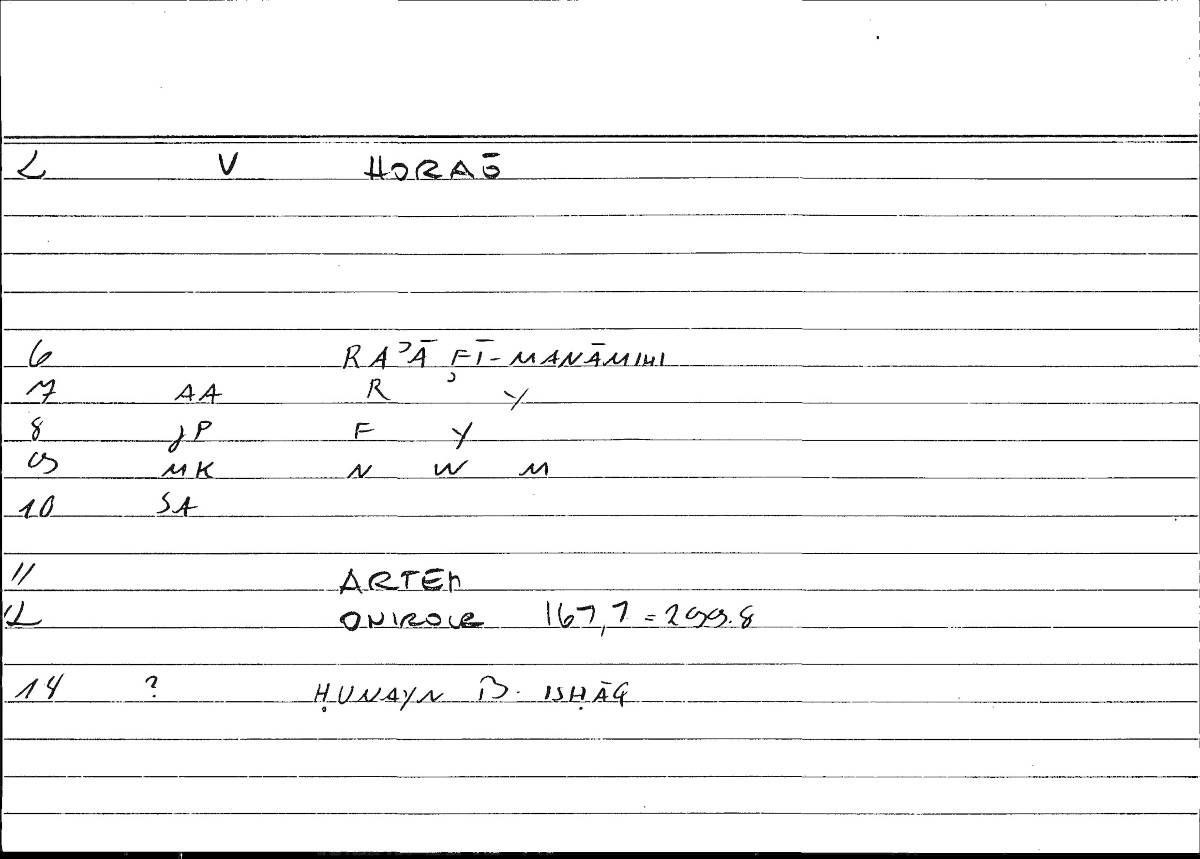 2 V HORAŌ
6 RAʾĀ FĪ-MANĀMIHI
7 AA R ʾ Y
8 JP F Y
9 MK N W M
10 SA
11 ARTEM
12 ONIROCR 167,7 = 299.8
14 ? ḤUNAYN B. ISḤĀQ